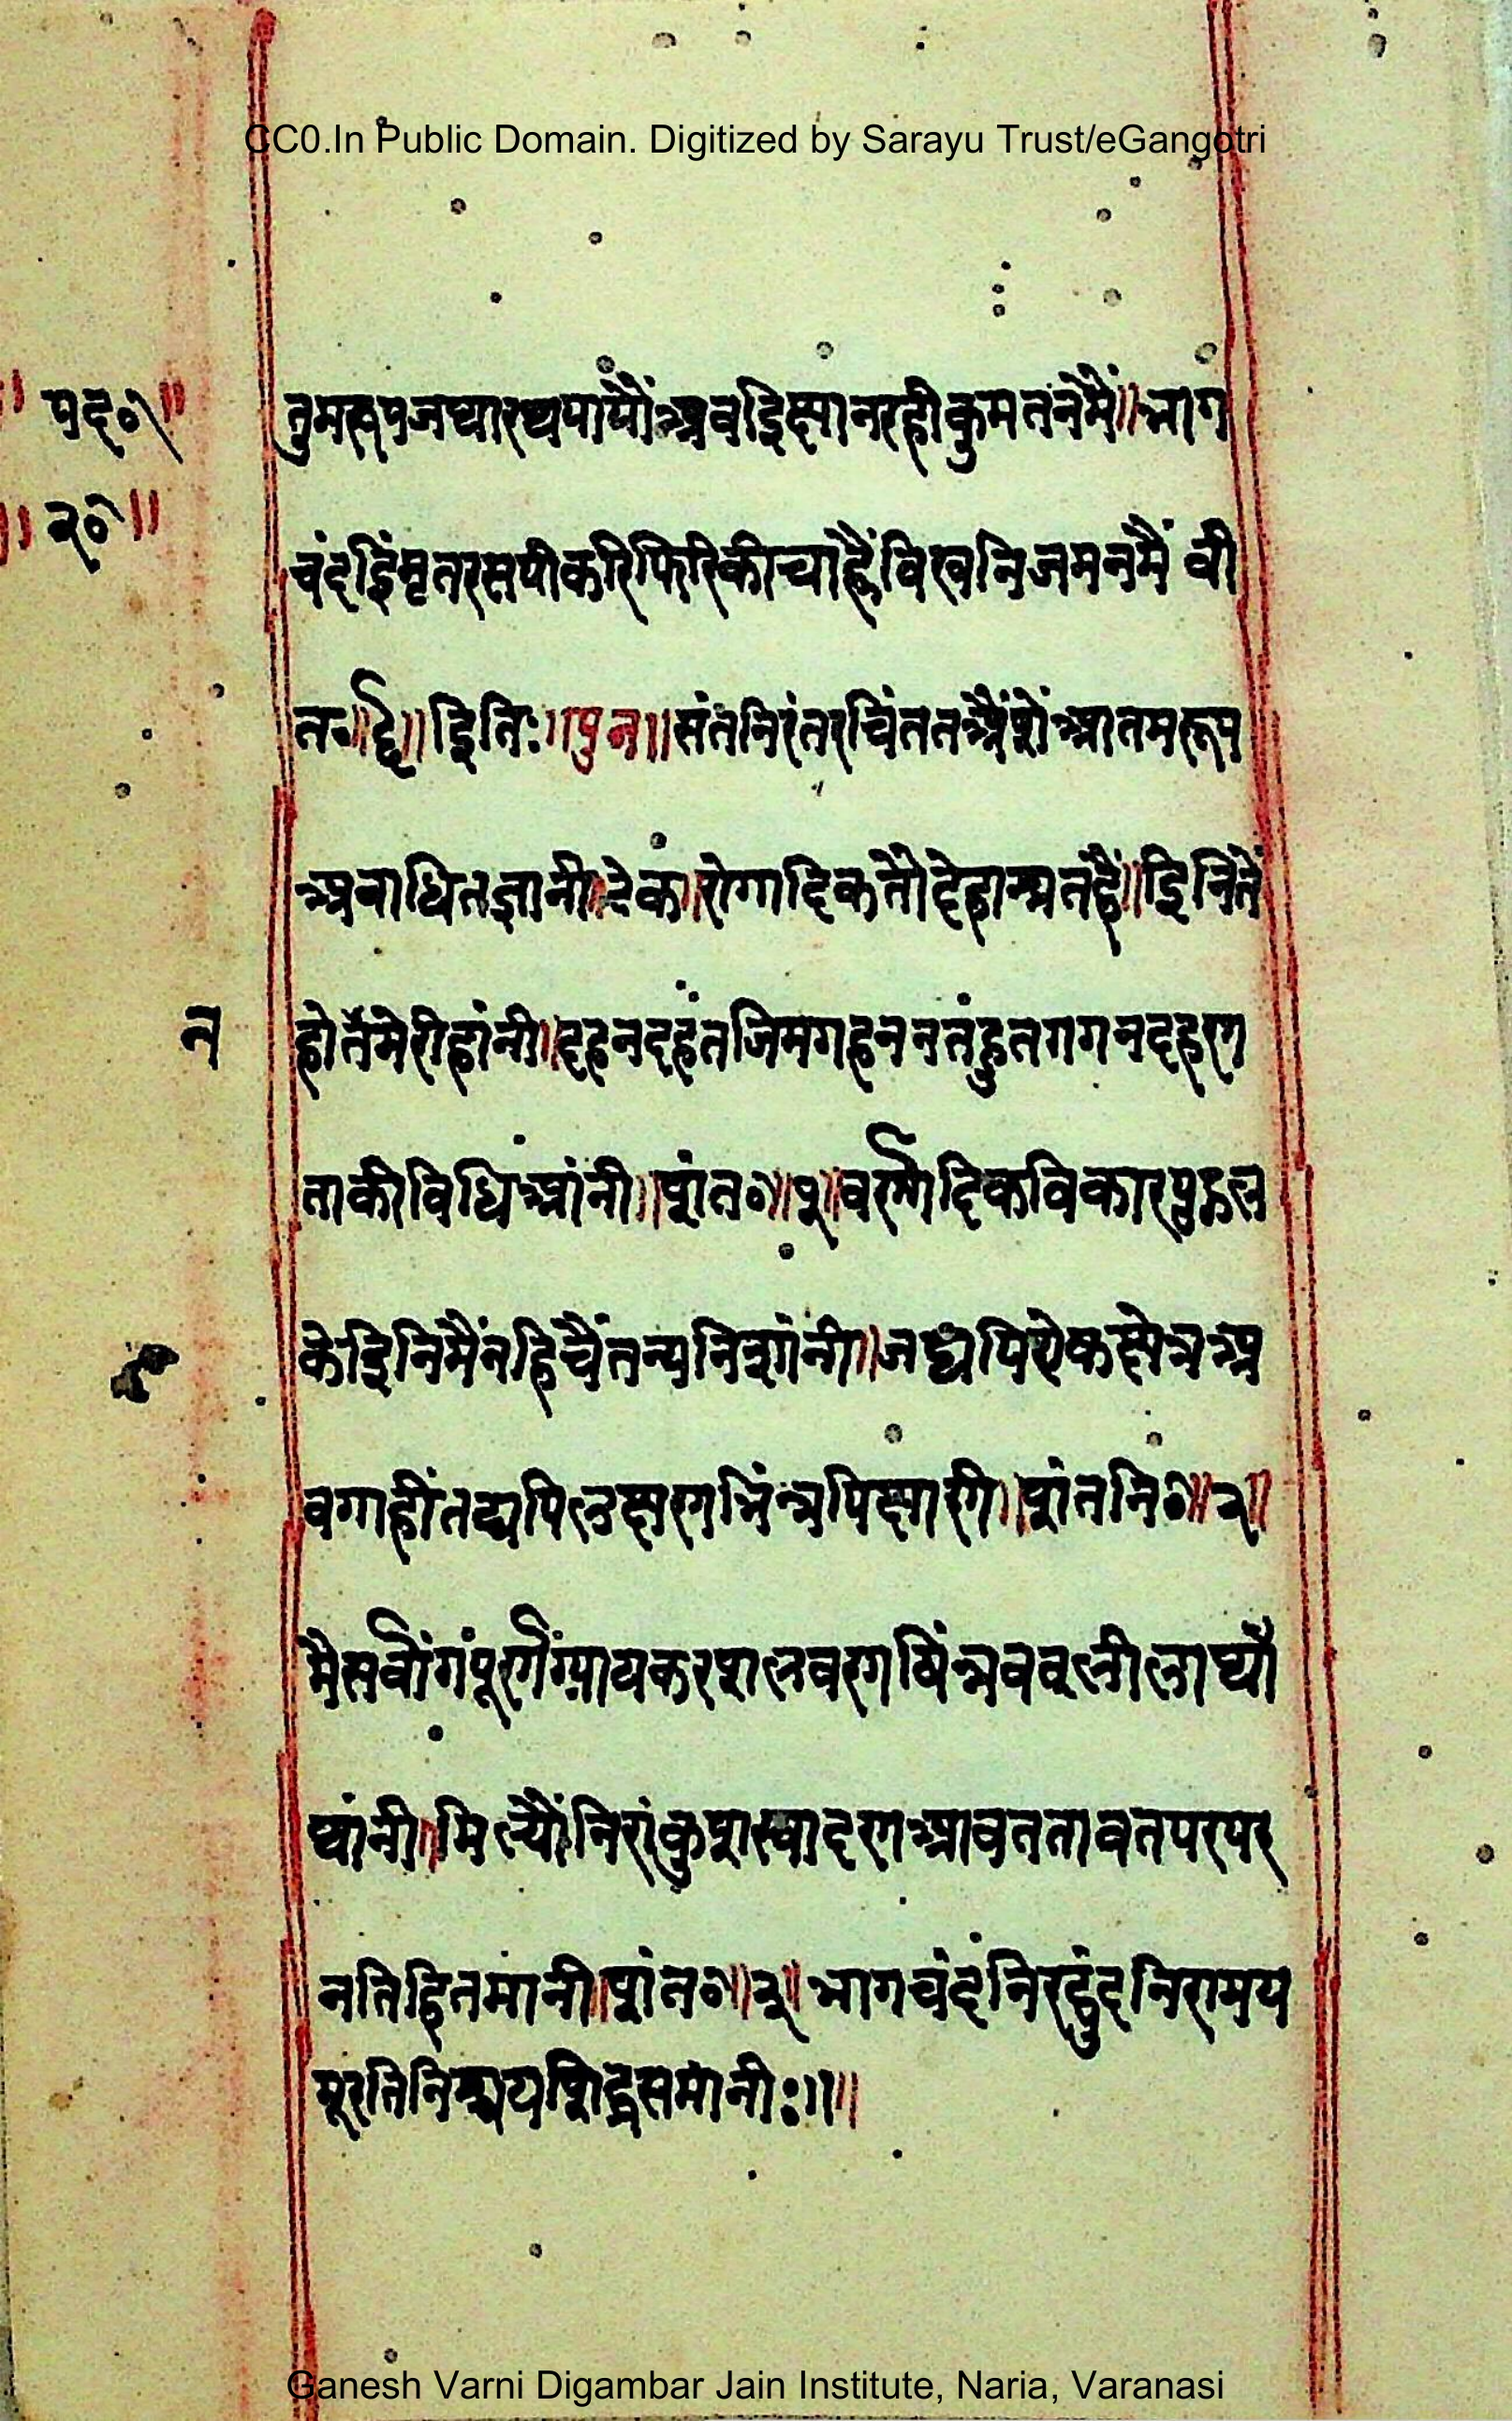 CC0.In Public Domain. Digitized by Sarayu Trust/eGangotri
॥ पद० ॥
॥ २० ॥
तुमरूपजथारथपायौंअवइक्षानरहीकुमतनमैं॥भाग
चंदइिंमृतरसपीकरिफिरिकीचाहैंविखनिजमनमैं वी
त०॥६॥इिति:॥पुन॥संतनिरंतरचिंततअैंशेंआतमरूप
अवाधितज्ञानी॥टेक॥रोगादिकतौदेहाश्रतहैं॥इिनितें
न
होतेंमेरीहांनी॥दहनदहंतजिमगहननतंहुतगगनदहण
ताकीविधिआंनी॥शंत०॥१॥वर्णादिकविकारपुद्गल
केइिनिमैंनहिचैंतन्यनिशांनी॥जद्यपिऐकक्षेत्रअ
वगाहींतद्यपिलक्षणभिंन्नपिक्षाणी॥शंतनि०॥२॥
मैंसर्वांगंपूर्णैंग्यायकरशलवणषिंन्नववलीलाघ्यौ
ध्यांनी॥मिल्यौंनिरांकुशस्वादणआवततावतपरपर
नतिहितमांनी॥शांत०॥३॥भागचंदंनिरद्वुंदनिरामय
मूरतिनिश्चयशिद्धसमांनी:॥॥
Ganesh Varni Digambar Jain Institute, Naria, Varanasi